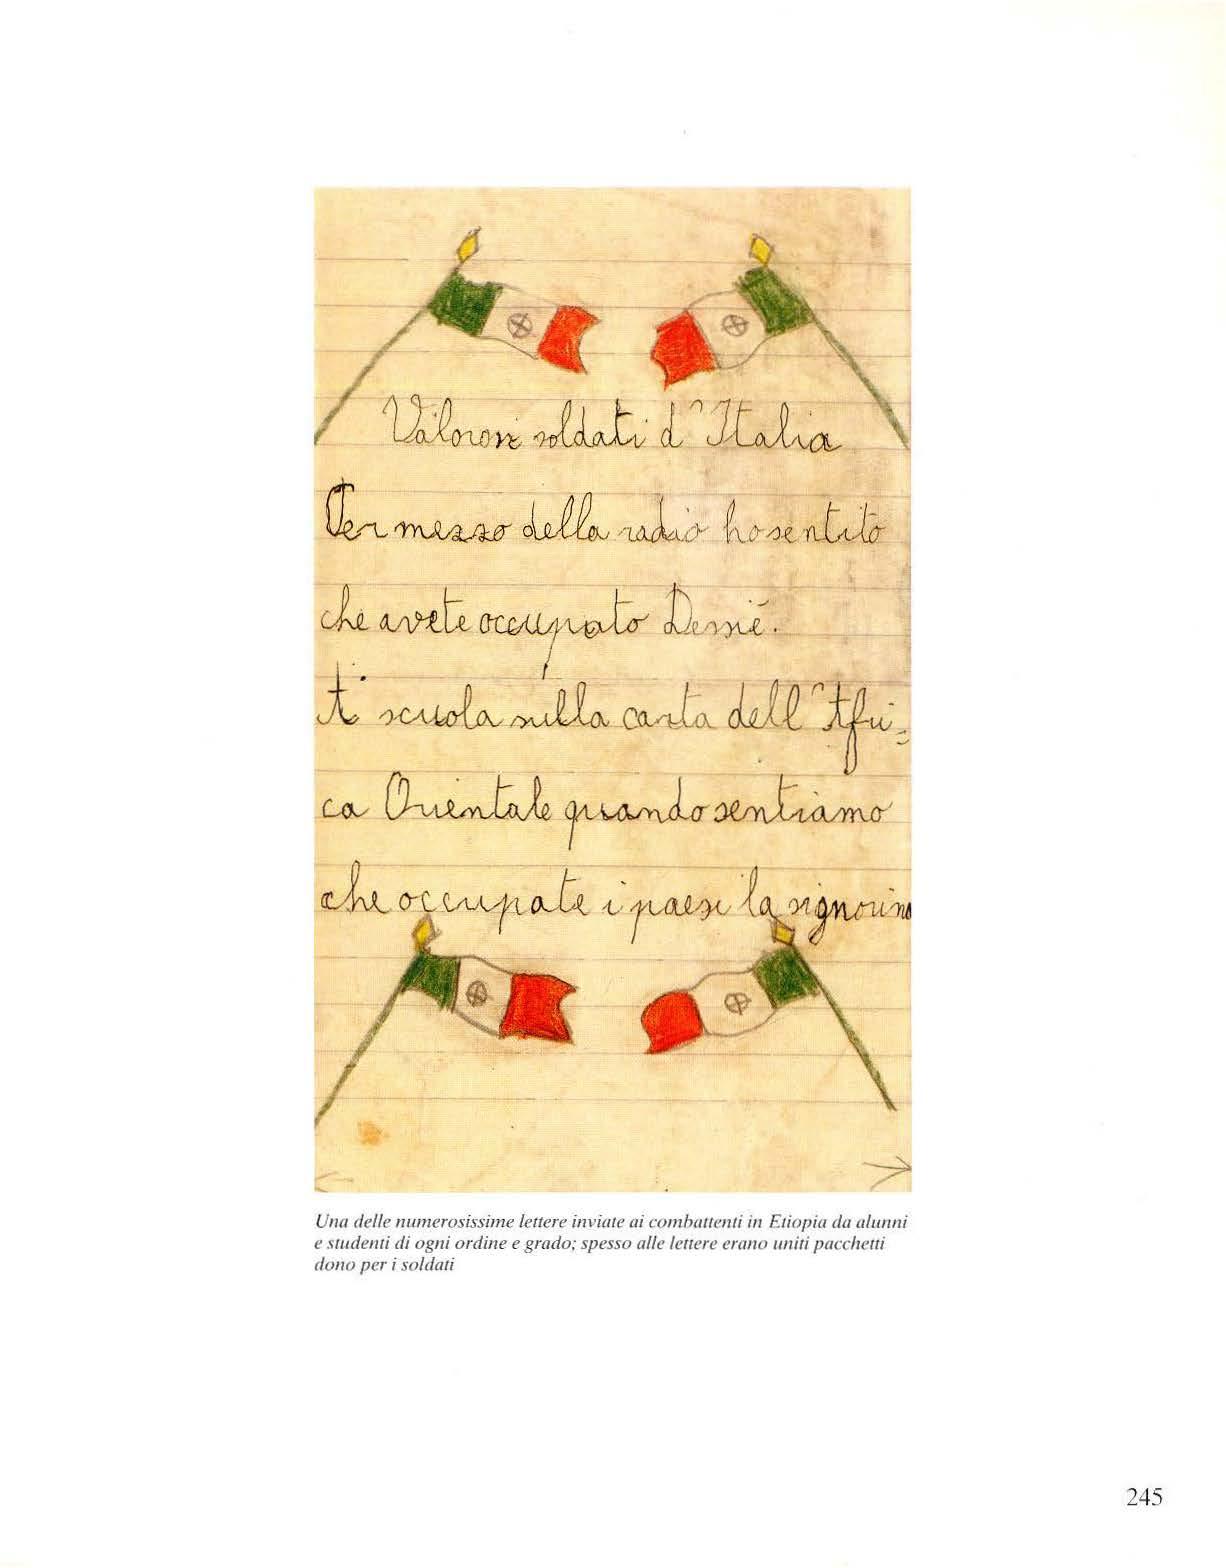 Valorosi soldati d'Italia
Per mezzo della radio ho sentito
che avete occupato Dessié.
A scuola sulla carta dell'Afri=
ca Orientale quando sentiamo
che occupate i paesi la signorina
Una delle numerosissime lettere inviate ai combattenti in Etiopia da alunni
e studenti di ogni ordine e grado; spesso alle lettere erano uniti pacchetti
dono per i soldati
245